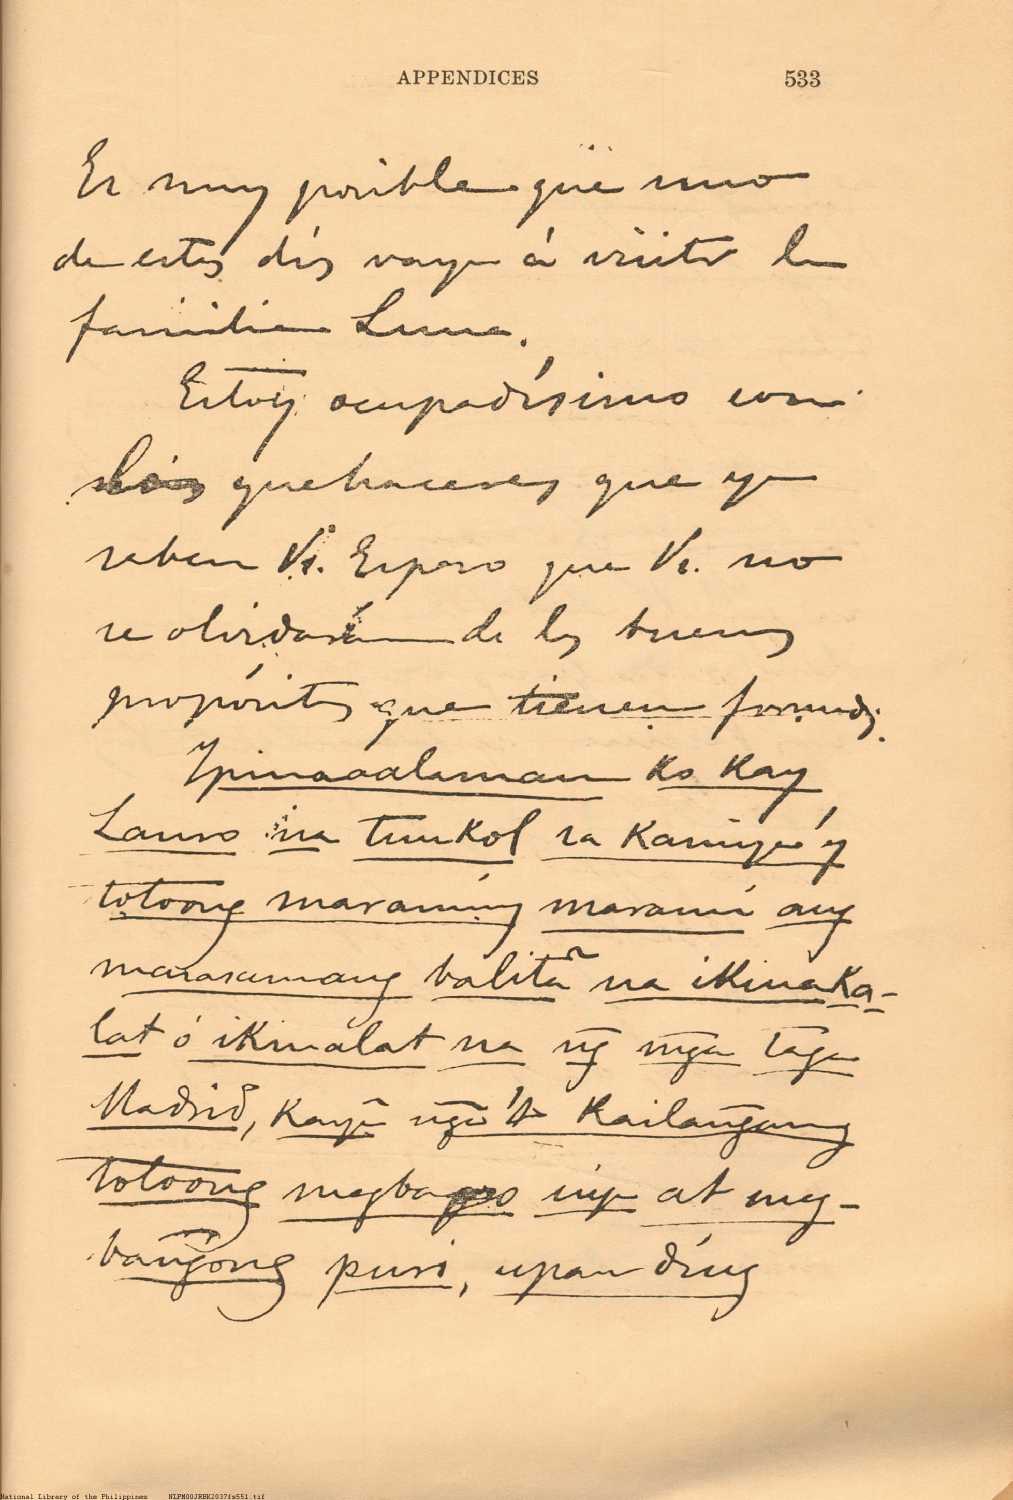 APPENDICES 533
Es muy posible que uno
de estos días vaya á visitar la
familia Luna.
Estoy ocupadísimo con
los quehaceres que ya
saben Vs. Espero que Vs. no
se olvidarán de los buenos
propósitos que tienen formados.
Ipinaaalaman ko kay
Lauro na tunkol sa kaniya'y
totoong maraming marami ang
masasamang balita na ikinaka-
lat ó ikinálat na ng̃ mg̃a taga
Madrid, kayā ng̃ā't kailang̃ang
totoong magbago siya at mag-
bang̃ong puri, upan díng
National Library of the Philippines NLPM00JRBK2037fs551.tif